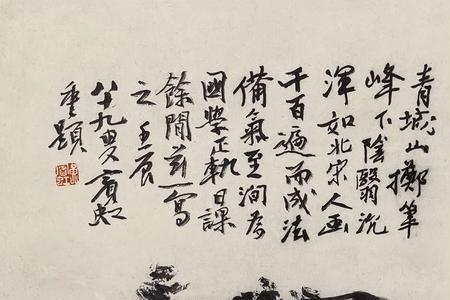 青城山擲筆
峰下陰翳沉
渾如北宋人画
千百遍而成法
備氣至
國學正執日課
餘閒寫
之壬辰
八十九叟賓虹
重題